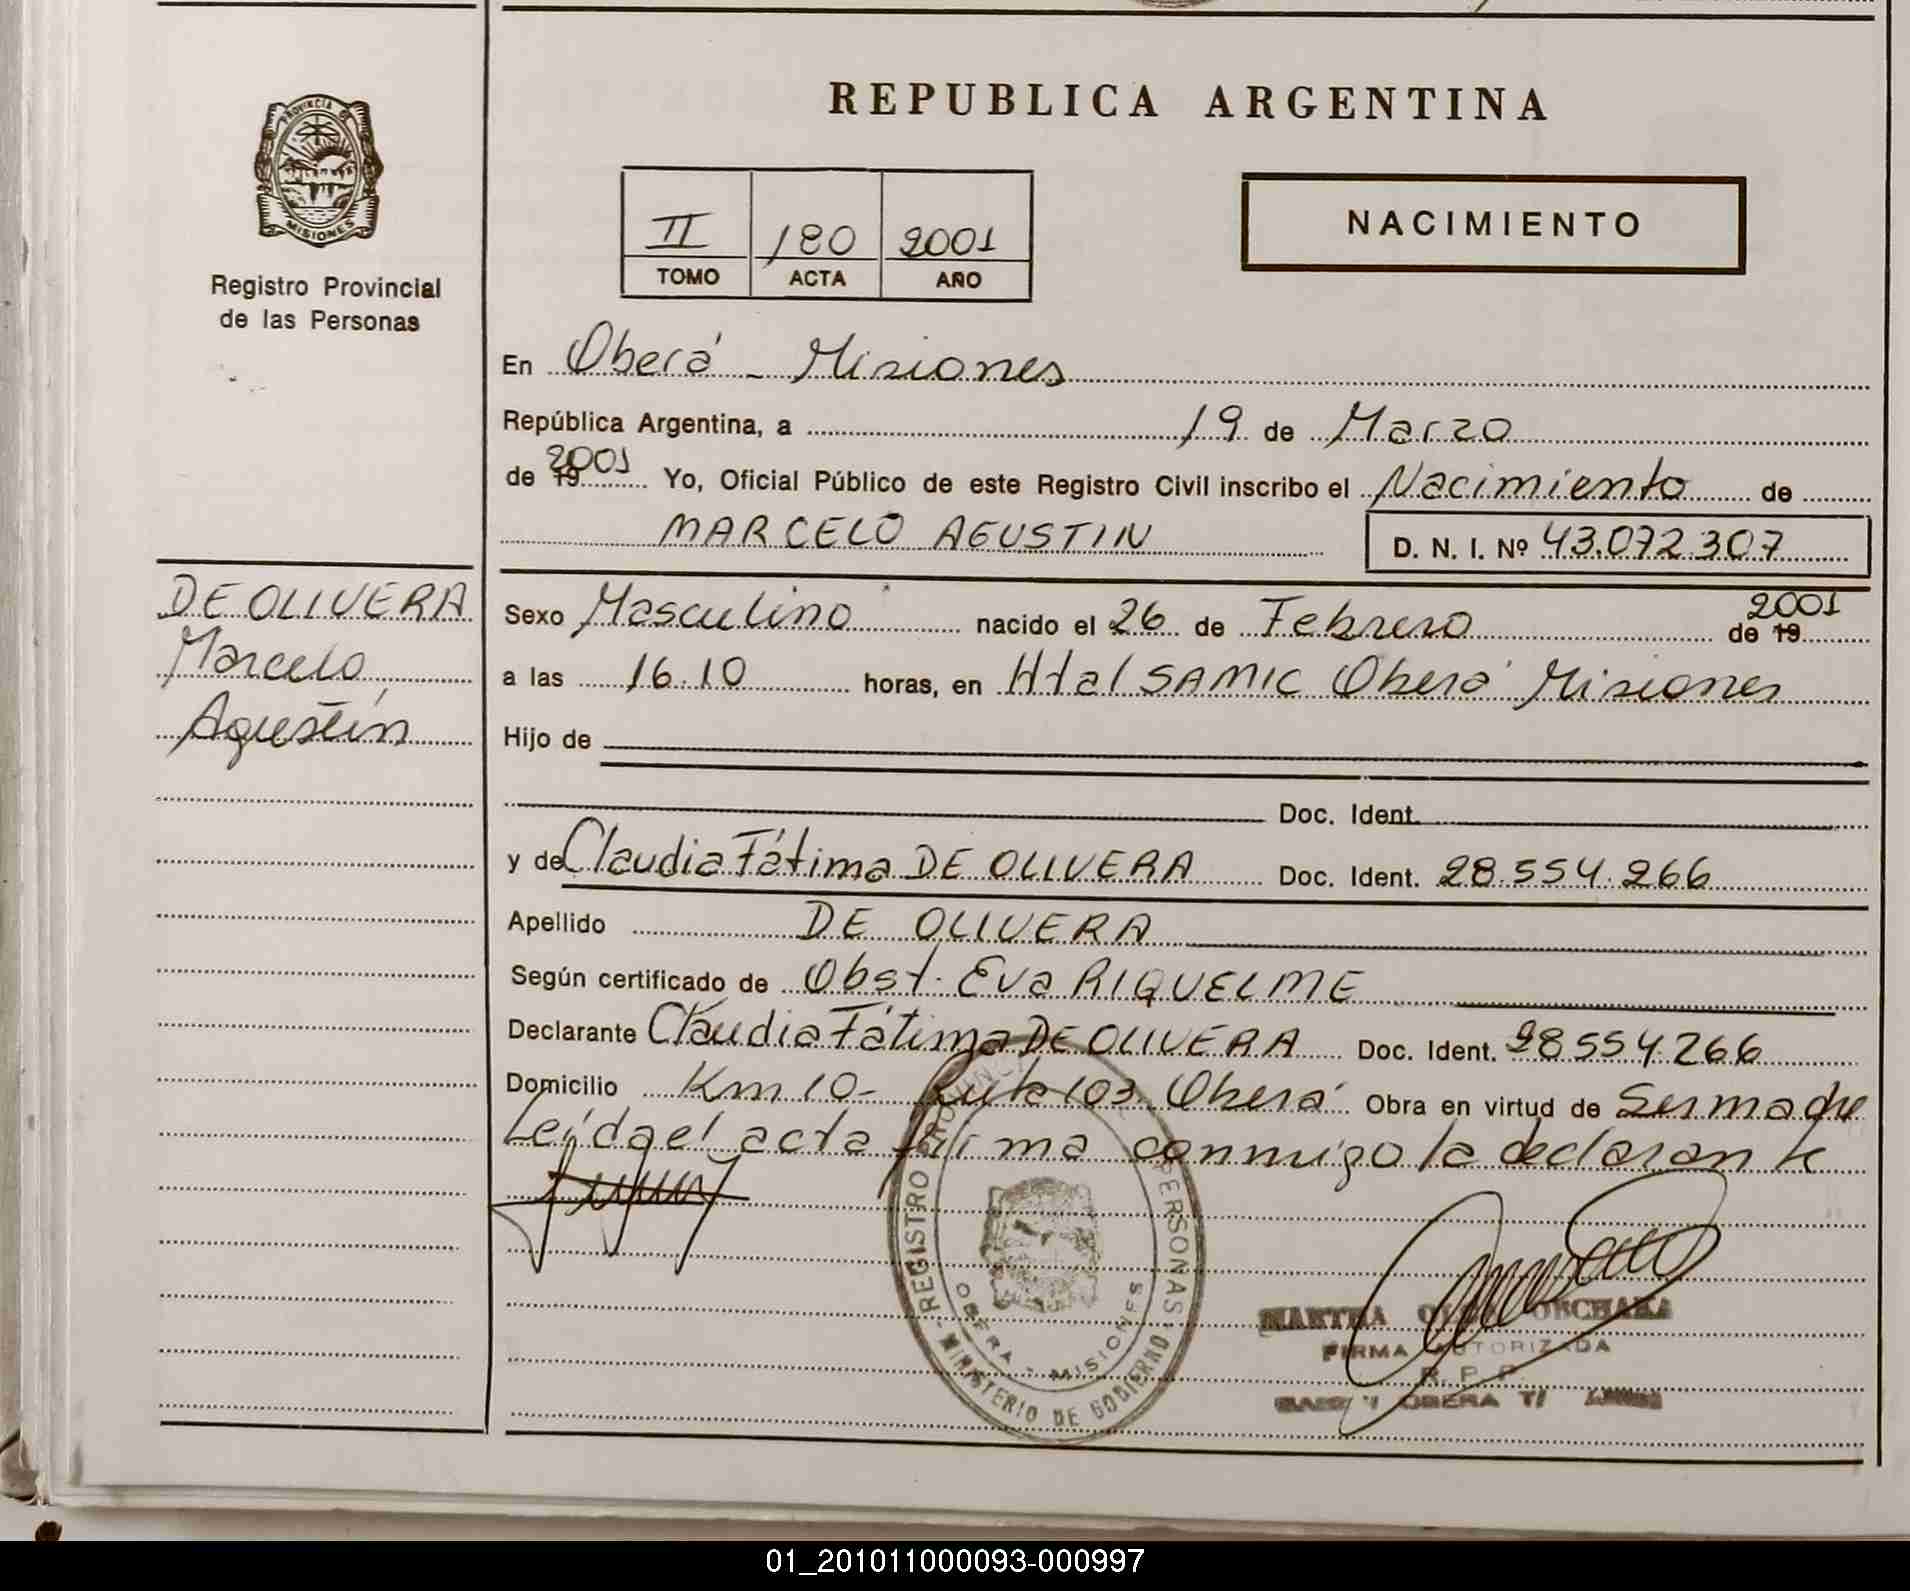 REPUBLICA ARGENTINA
PROVINCIA DE
MISIONES
Registro Provincial
de las Personas
II 180 2001
TOMO ACTA AÑO
NACIMIENTO
En Oberá - Misiones
República Argentina, a 19 de Marzo
de 19 2001 Yo, Oficial Público de este Registro Civil inscribo el Nacimiento de
MARCELO AGUSTIN D. N. I. Nº 43.072.307
DE OLIVERA
Marcelo
Agustín
Sexo Masculino nacido el 26 de Febrero de 19 2001
a las 16.10 horas, en Htal SAMIC Oberá Misiones
Hijo de
Doc. Ident.
y de Claudia Fátima DE OLIVERA Doc. Ident. 28.554.266
Apellido DE OLIVERA
Según certificado de Obst. Eva RIQUELME
Declarante Claudia Fátima DE OLIVERA Doc. Ident. 28554.266
Domicilio Km 10- Ruta 103 Oberá Obra en virtud de Ser madre
Leída el acta firma conmigo la declarante
REGISTRO PROVINCIAL PERSONAS
OBERA - MISIONES
- MINISTERIO DE GOBIERNO -
MARTHA
FIRMA AUTORIZADA
R. P. P.
OBERA
01_201011000093-000997